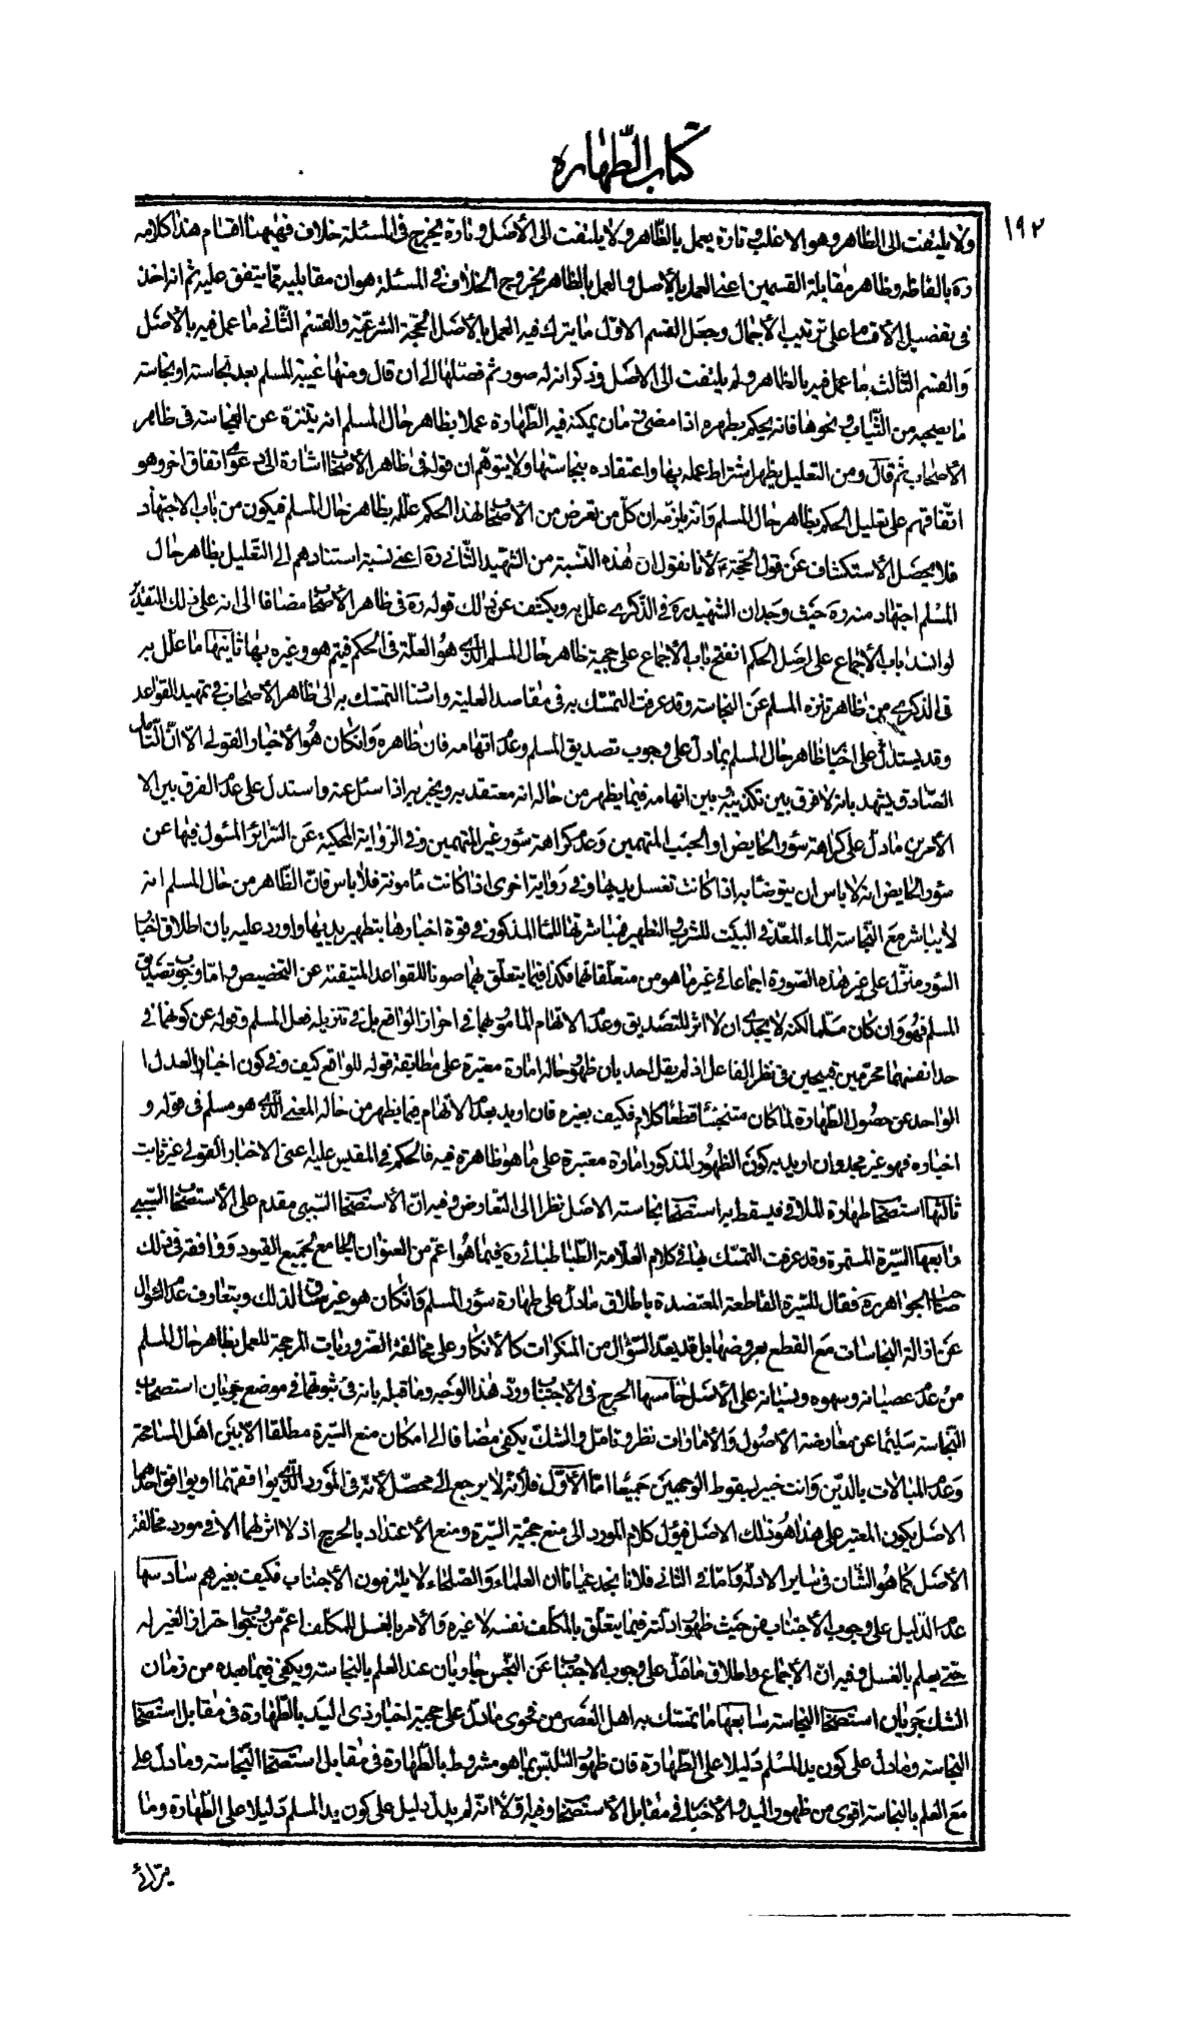 كتاب الطهارة
١٩٢
ولا يلتفت الى الظاهر وهو الاغلب وتارة يعمل بالظاهر ولا يلتفت الى الأصل وتارة يخرج في المسئلة خلاف فههنا اقسام هذا كلامه
ره بالفاظه وظاهر مقابلة القسمين اعنى العمل بالأصل والعمل بالظاهر بخروج الخلاف في المسئلة هو ان مقابليه مما يتفق عليه ثم انه اخذ
في تفصيل الأقسام على ترتيب الأجمال وجعل القسم الاول ما يترك فيه العمل بالأصل للحجة الشرعية والقسم الثاني ما عمل فيه بالأصل
والقسم الثالث ما عمل فيه بالظاهر ولم يلتفت الى الاصل وذكر انه له صور ثم فصلها الى ان قال ومنها غيبة المسلم بعد نجاسته او نجاسة
ما يصحبه من الثياب ونحوها فانه يحكم بطهره اذا مضى زمان يمكنه فيه الطهارة عملا بظاهر حال المسلم انه يتنزه عن النجاسة في ظاهر
الأصحاب ثم قال ومن التعليل يظهر اشتراط علمه بها واعتقاده بنجاستها ولا يتوهم ان قوله في ظاهر الأصحاب اشارة الى دعوى اتفاق اخر وهو
اتفاقهم على تعليل الحكم بظاهر حال المسلم وانه يلزمه ان كل من تعرض من الأصحاب لهذا الحكم علله بظاهر حال المسلم فيكون من باب الاجتهاد
فلا يحصل الأستكشاف عن قول الحجة ع لأنا نقول ان هذه النسبة من الشهيد الثاني ره اعنى نسبة استنادهم الى التعليل بظاهر حال
المسلم اجتهاد منه ره حيث وجد ان الشهيد ره في الذكرى علل به ويكشف عن ذلك قوله ره في ظاهر الأصحاب مضافا الى انه على ذلك التقدير
لو انسد باب الاجماع على اصل الحكم انفتح باب الأجماع على حجية ظاهر حال المسلم الذي هو العلة في الحكم فيتم هو وغيره بها ثانيها ما علل به
في الذكرى من ظاهر تنزه المسلم عن النجاسة وقد عرفت التمسك به في مقاصد العلية واسنا التمسك به الى ظاهر الأصحاب في تمهيد القواعد
وقد يستدل على اعتبار ظاهر حال المسلم بما دل على وجوب تصديق المسلم وعدم اتهامه فان ظاهره وان كان هو الأخبار القولى الا ان التامل
الصادق يشهد بانه لا فرق بين تكذيبه وبين اتهامه فيما يظهر من حاله انه معتقد به ويخبر به اذا سئل عنه واستدل على عدم الفرق بين الا
الأمرين ما دل على كراهة سؤر الحايض او الجنب المتهمين وعدم كراهة سؤر غير المتهمين وفي الرواية المحكية عن السرائر المسئول فيها عن
سؤر الحايض انه لا باس ان يتوضا به اذا كانت تغسل يديها وفي رواية اخرى اذا كانت مأمونة فلا باس فان الظاهر من حال المسلم انه
لا يباشر مع النجاسة الماء المعد في البيت للشرب والتطهير فمباشرتها للماء المذكور في قوة اخبارها بتطهير يديها واورد عليه بان اطلاق اخبار
السؤر منزل على غير هذه الصورة اجماعا في غير ما هو من متعلقاتها فكذا فيما يتعلق بهما صونا للقواعد المتيقنة عن التخصيص واما وجوب تصديق
المسلم فهو وان كان مسلما لكنه لا يجدى ان لا اثر للتصديق وعدم الاتهام المأمور بهما في احراز الواقع بل في تنزيل فعل المسلم وقوله عن كونهما في
حد انفسهما محرمين قبيحين في نظر الفاعل اذ لم يقل احد بان ظهور حاله امارة معتبرة على مطابقة قوله للواقع كيف وفي كون اخبار العدل ا
الواحد عن حصول الطهارة لما كان متنجسا قطعا كلام فكيف بغيره فان اريد بعدم الاتهام فيما يظهر من حاله المعنى الذي هو مسلم في قوله و
اخباره فهو غير مجد وان اريد به كون الظهور المذكور امارة معتبرة على ما هو ظاهرة فيه فالحكم في المقيس عليه اعنى الاخبار القولى غير ثابت
ثالثها استصحاب طهارة الملاقى فيسقط به استصحاب نجاسة الاصل نظرا الى التعارض وفيه ان الأستصحاب السببى مقدم على الأستصحاب المسببى
رابعها السيرة المستمرة وقد عرفت التمسك بها في كلام العلامة الطباطبائى ره فيما هو اعم من العنوان الجامع لجميع القيود ووافقه في ذلك
صاحب الجواهر ره فقال للسيرة القاطعة المعتضدة باطلاق ما دل على طهارة سؤر المسلم وان كان هو غير مساق لذلك وبتعارف عدم السؤال
عن ازالة النجاسات مع القطع بعروضها بل قد يعد السؤال من المنكرات كالأنكار على مخالفة الضروريات المرجحة للعمل بظاهر حال المسلم
من عدم عصيانه وسهوه ونسيانه على الأصل خامسها الحرج في الأجتناب ورد هذا الوجه وما قبله بانه في ثبوتهما في موضع جريان استصحاب
النجاسة سليما عن معارضة الاصول والأمارات نظر وتامل والشك يكفى مضافا الى امكان منع السيرة مطلقا الا بين اهل المسامحة
وعدم المبالات بالدين وانت خبير بسقوط الوجهين جميعا اما الأول فلأنه لا يرجع الى محصل لأنه في المورد الذي يوافقهما او يوافق احدهما
الاصل يكون المعتبر على هذا هو ذلك الاصل فيؤل كلام المورد الى منع حجية السيرة ومنع الأعتداد بالحرج اذ لا اثر لهما الا في مورد مخالفة
الأصل كما هو الشان في ساير الادلة واما في الثاني فلانا نجد عيانا ان العلماء والصلحاء لا يلتزمون الأجتناب فكيف بغيرهم سادسها
عدم الدليل على وجوب الأجتناب من حيث ظهور ادلته فيما يتعلق بالمكلف نفسه لا غيره والأمر بالغسل للمكلف اعم من وجوب احتراز الغير له
حتى يعلم بالغسل وفيه ان الأجماع واطلاق ما دل على وجوب الاجتناب عن النجس جاريان عند العلم بالنجاسة ويكفى فيما بعده من زمان
الشك جريان استصحاب النجاسة سابعها ما تمسك به اهل العصر من فحوى ما دل على حجية اخبار ذى اليد بالطهارة في مقابل استصحاب
النجاسة وما دل على كون يد المسلم دليلا على الطهارة فان ظهور التلبس بما هو مشروط بالطهارة في مقابل استصحاب النجاسة وما دل على
مع العلم بالنجاسة اقوى من ظهور اليد والأخبار في مقابل الأستصحاب وفيه اولا انه لم يدل دليل على كون يد المسلم دليلا على الطهارة وما